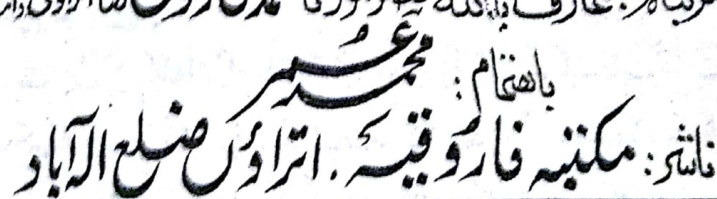 باہتمام: محمد عمر
ناشر: مکتبہ فاروقیہ، اتراؤں ضلع الہ آباد